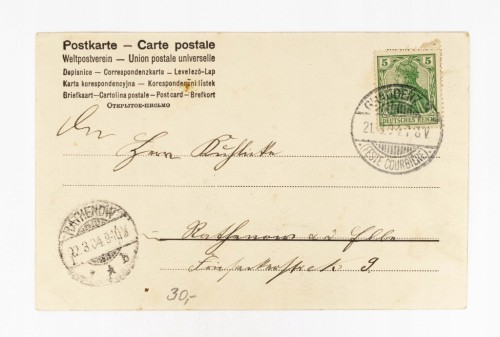 Postkarte — Carte postale
Weltpostverein — Union postale universelle
Dopisnice — Correspondenzkarte — Levelező-Lap
Karta korespondencyjna — Korespondenční lístek
Briefkaart — Cartolina postale — Post card — Brefkort
Открытое-письмо
5 5
DEUTSCHES REICH
GRAUDENZ
(FESTE COURBIÈRE)
An
Herrn
Rathenow a d Elbe
9
RATHENOW
22.3.04.
30,-